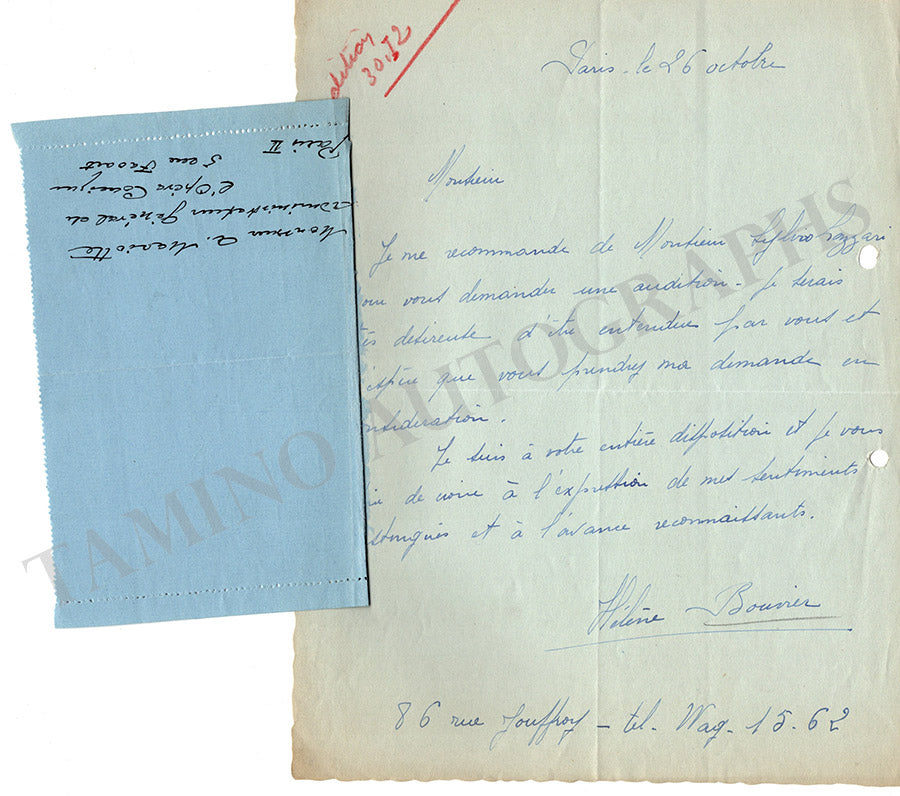 dition
30.12
Paris. le 26 octobre
Monsieur
Je me recommande de Monsieur Sylvio Lazzari
our vous demander une audition. Je serais
ès désireuse d'être entendue par vous et
espère que vous prendrez ma demande en
nsidération.
Je suis à votre entière disposition et je vous
ie de croire à l'expression de mes sentiments
stingués et à l'avance reconnaissants.
Hélène Bouvier
86 rue Jouffroy - tel. Wag. 15.62
Monsieur A. Mariotte
Administrateur Général de
l'Opéra Comique
5 rue Favart
Paris II
TAMINO AUTOGRAPHS